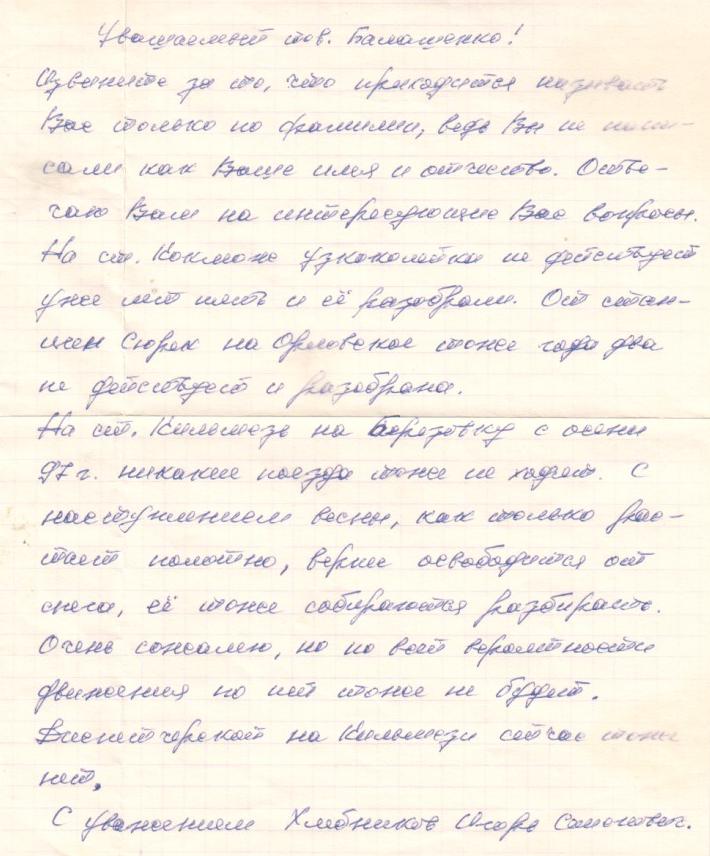 Уважаемый тов. Балашенко!
Извините за то, что приходится называть
Вас только по фамилии, ведь Вы не напи-
сали как Ваше имя и отчество. Отве-
чаю Вам на интересующие Вас вопросы.
На ст. Кокмож узкоколейка не действует
уже лет пять и её разобрали. От стан-
ции Сюрек на Орловское тоже года два
не действует и разобрана.
На ст. Кильмезь на Березовку с осени
97 г. никакие поезда тоже не ходят. С
наступлением весны, как только рас-
тает полотно, вернее освободится от
снега, её тоже собираются разбирать.
Очень сожалею, но по всей вероятности
движения по ней тоже не будет.
Диспетчерской на Кильмези сейчас тоже
нет.
С уважением Хлебников Игорь